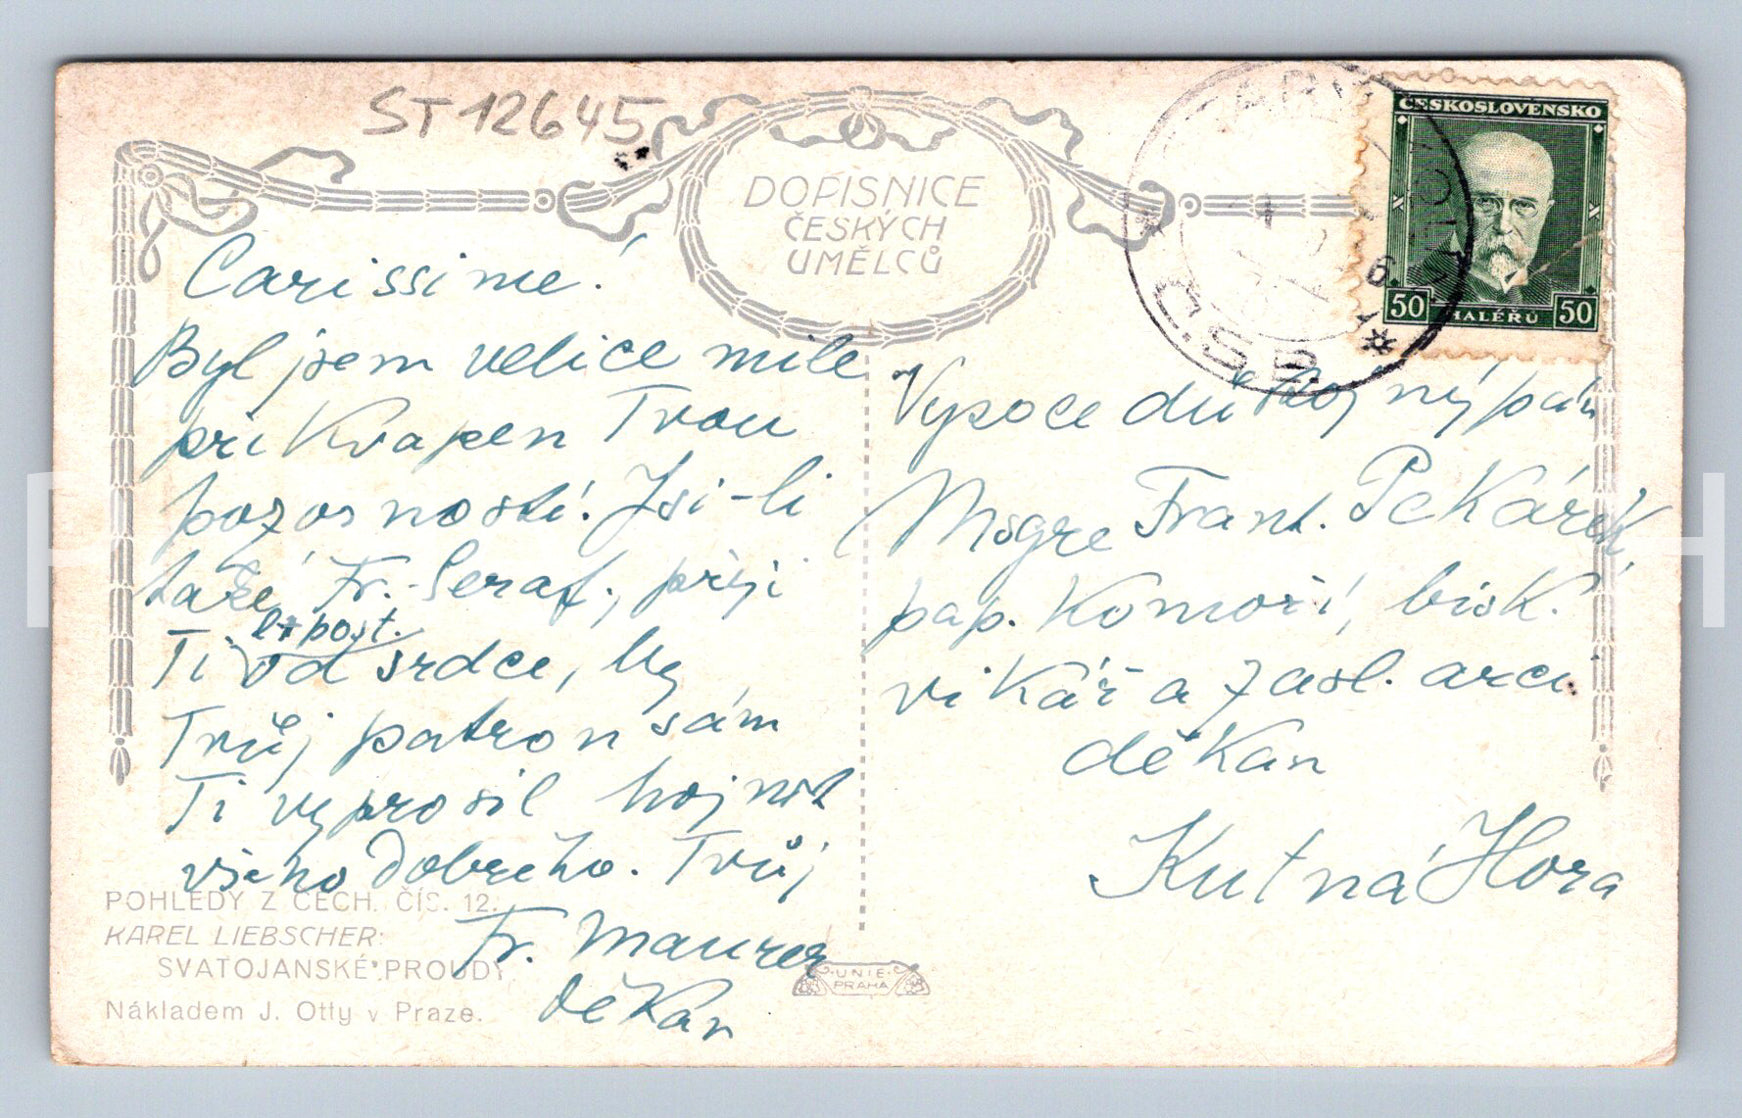 ST 12645
DOPISNICE
ČESKÝCH
UMĚLCŮ
ČESKOSLOVENSKO
50 HALÉŘŮ 50
Č.S.R.
Carissime!
Byl jsem velice mile
překvapen Tvou
pozorností. Jsi-li
také Fr. Seraf., přeji
ex post.
Ti od srdce, by
Tvůj patron sám
Ti vyprosil hojnost
všeho dobrého. Tvůj
Fr. Maurer
děkan
Vysoce důstojný pán
Msgre Frant. Pekárek,
pap. komoří, bisk.
vikář a zasl. arci
děkan
Kutná Hora
POHLEDY Z ČECH. ČÍS. 12.
KAREL LIEBSCHER:
SVATOJANSKÉ PROUDY
Nákladem J. Otty v Praze.
UNIE
PRAHA